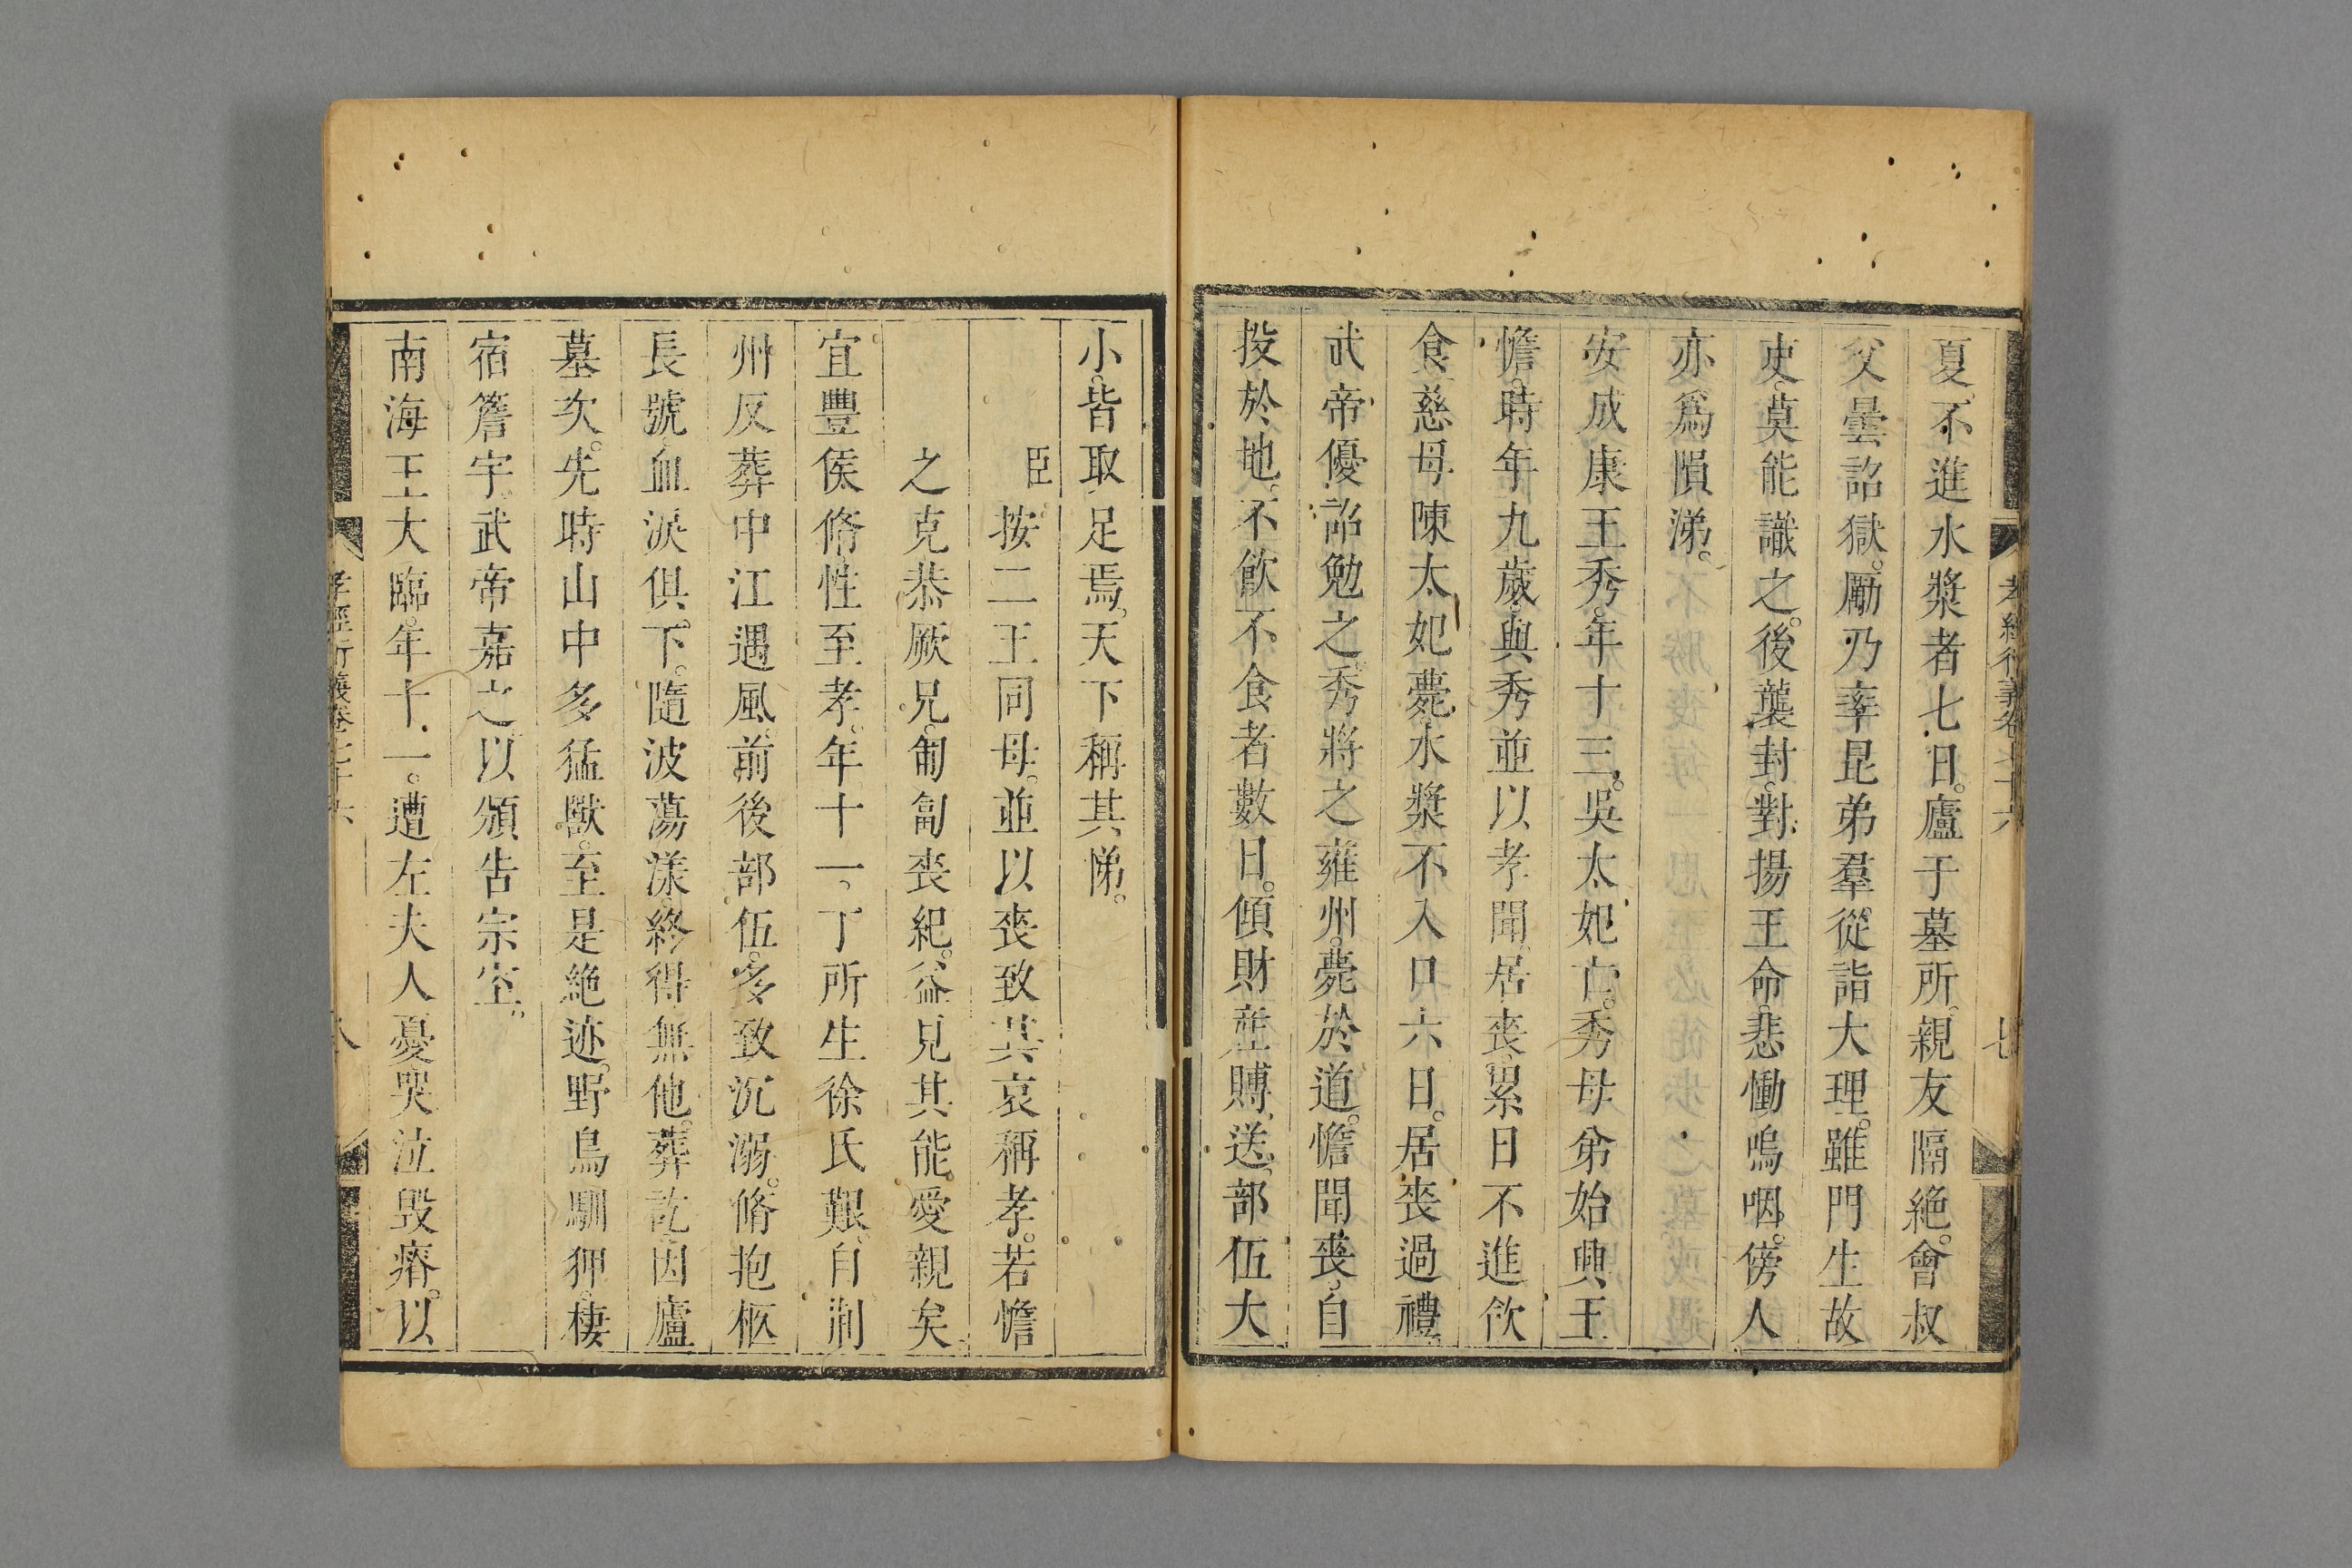 夏不進水漿者七日。廬于墓所。親友隔絶。會叔
父曇詔獄。勵乃率昆弟羣從。詣大理。雖門生故
吏。莫能識之。後襲封。對揚王命。悲慟嗚咽。傍人
亦爲隕涕。
安成康王秀。年十三。吳太妃亡。秀母弟始興王
憺。時年九歲。與秀並以孝聞。居喪。累日不進飲
食。慈母陳太妃薨。水漿不入口六日。居喪過禮。
武帝優詔勉之。秀將之雍州。薨於道。憺聞喪。自
投於地。不飲不食者數日。傾財産賻送。部伍大
小。皆取足焉。天下稱其悌。
臣按二王同母。並以喪致其哀稱孝。若憺
之克恭厥兄。匍匐喪紀。益見其能愛親矣。
宜豐侯脩。性至孝。年十一。丁所生徐氏艱。自荆
州反葬。中江遇風。前後部伍。多致沉溺。脩抱柩
長號。血淚俱下。隨波蕩漾。終得無他。葬訖。因廬
墓次。先時山中多猛獸。至是絶迹。野鳥馴狎。棲
宿簷宇。武帝嘉之。以頒告宗室。
南海王大臨。年十一。遭左夫人憂。哭泣毁瘠。以
孝經衍義卷七十六
七
八